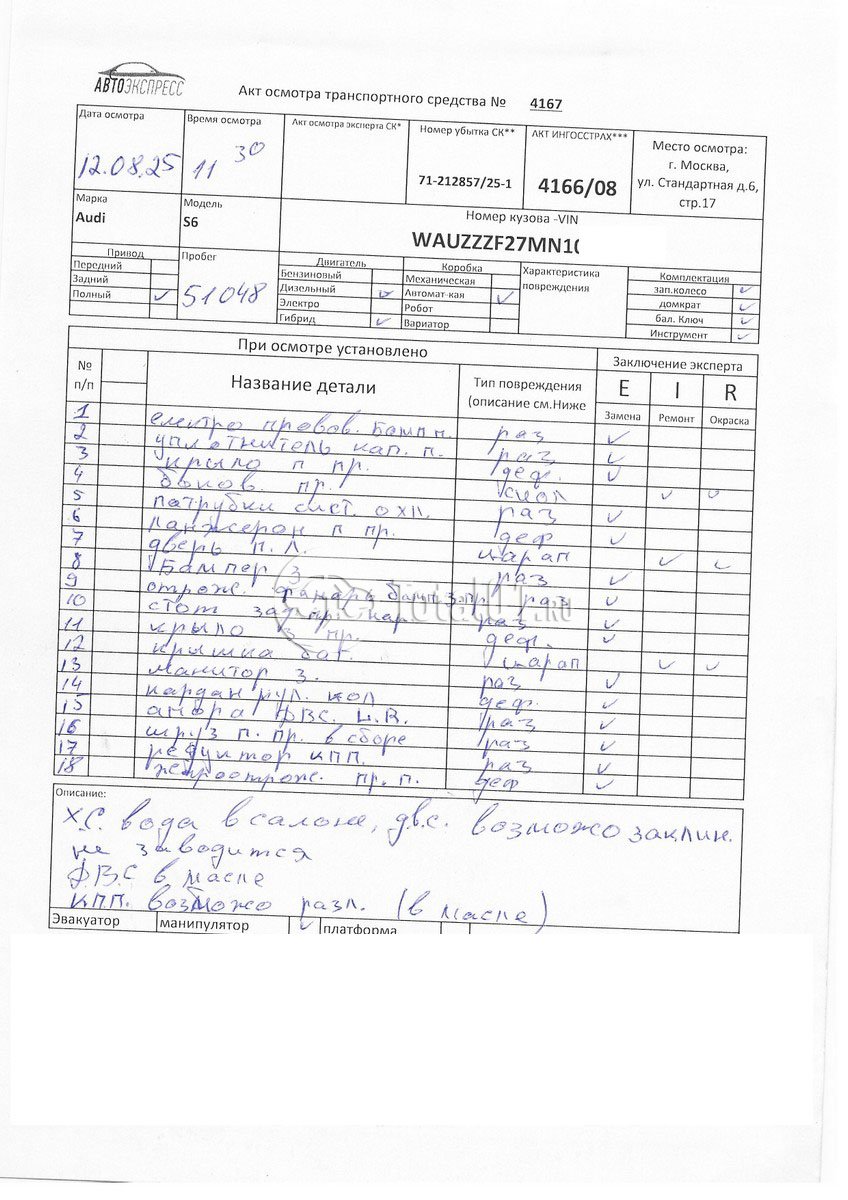 АВТОЭКСПРЕСС
Акт осмотра транспортного средства № 4167
Дата осмотра
12.08.25
Время осмотра
11 30
Акт осмотра эксперта СК*
Номер убытка СК**
71-212857/25-1
АКТ ИНГОССТРАХ***
4166/08
Место осмотра:
г. Москва,
ул. Стандартная д.6,
стр.17
Марка
Audi
Модель
S6
Номер кузова -VIN
WAUZZZF27MN10
Привод
Передний
Задний
Полный ✓
Пробег
51048
Двигатель
Бензиновый
Дизельный ✓
Электро
Гибрид ✓
Коробка
Механическая
Автомат-кая ✓
Робот
Вариатор
Характеристика
повреждения
Комплектация
зап.колесо ✓
домкрат ✓
бал. Ключ ✓
Инструмент ✓
При осмотре установлено
Заключение эксперта
№
п/п
Название детали
Тип повреждения
(описание см.Ниже
E I R
Замена Ремонт Окраска
1 електро провов. Бамп п. раз ✓
2 уплотнитель кап. п. раз ✓
3 крыло п пр. деф. ✓
4 боков. пр. скол ✓ ✓
5 патрубки сист. охл. раз ✓
6 ланжерон п пр. деф ✓
7 дверь п. л. царап ✓ ✓
8 Бампер з раз ✓
9 отраж. фонарь бамп. з пр раз ✓
10 стоп зад пр нар раз ✓
11 крыло з пр. деф. ✓
12 крышка баг. царап ✓ ✓
13 манитор з. раз ✓
14 кардан рул. кол деф. ✓
15 опора ДВС. раз ✓
16 шруз п. пр. в сборе раз ✓
17 редуктор кпп. раз ✓
18 пр. п. деф ✓
Total01.RU
Описание:
х.с. вода в салоне, д.в.с. возможо заклин.
не заводится
ДВС в масле
КПП. возможо разл. (в масле)
Эвакуатор манипулятор ✓ платформа